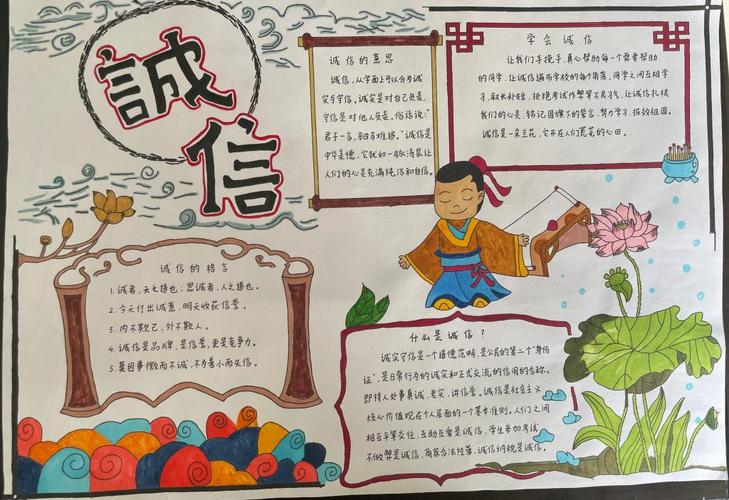 誠信
诚信的意思
诚信,从字面上可以分为诚
实与守信。诚实是对自己负责,
守信是对他人负责,俗话说:"
君子一言,驷马难追。"诚信是
中华美德,它就如一脉清泉让
人们的心灵充满纯洁和自信。
学会诚信
让我们手挽手,真心帮助每一个需要帮助
的同学,让诚信遍布学校的每个角落,同学之间互相学
习,取长补短,拒绝考试作弊等不良习气,让诚信扎根
我们的心灵,铭记国旗下的誓言,努力学习,报效祖国。
诚信是一朵兰花,它开在人们荒芜的心田。
诚信的格言
1.诚者,天之道也;思诚者,人之道也。
2.今天付出诚意,明天收获信誉。
3.内不欺己,外不欺人。
4.诚信是品牌,是信誉,更是竞争力。
5.莫因事微而不诚,不为善小而失信。
什么是诚信?
诚实守信是一个道德范畴,是公民的第二个"身份
证",是日常行为的诚实和正式交流的信用的合称。
即待人处事真诚、老实、讲信誉。诚信是社会主义
核心价值观在个人层面的一个基本准则。人们之间
相互平等交往,互助互爱是诚信,学生参加考试
不做弊是诚信,商家合法经营,诚信纳税是诚信。